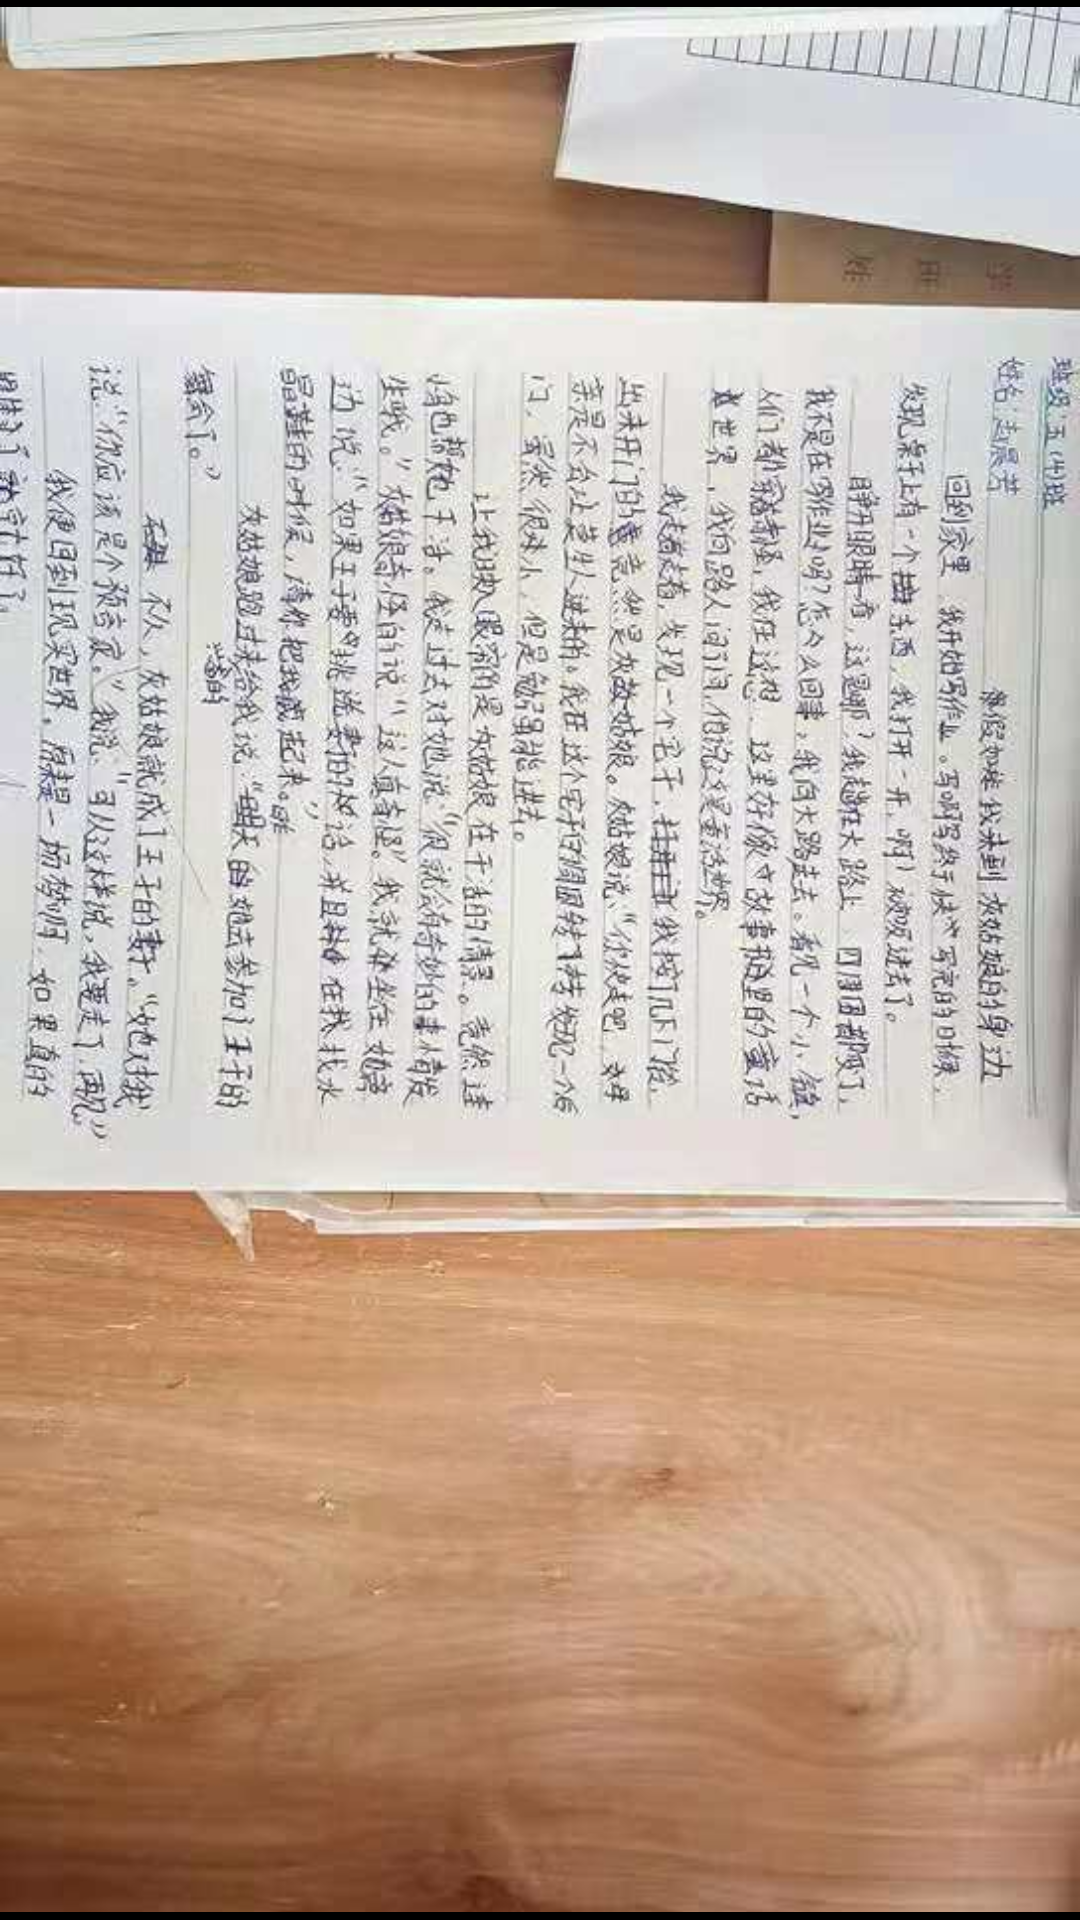 班级五(4)班
姓名
暑假如燃我来到灰姑娘的身边
回到家里,我开始写作业。写啊写终于快要写完的时候,
发现桌子上有一个东西,我打开一开,啊!被吸进去了。
睁开眼睛一看,这是哪?我趟在大路上,四周围都
我不是在写作业吗?怎么么回事,我向大路走去。看见一个小镇,
人们都穿着,我在这想,这里好像故事书里的童话
世界,我向路人问问,他说这是童话世界。
我走着走着,发现一个宅子,我按了几下门铃,
出来开门的竟然是灰姑娘。灰姑娘说:“你快走吧,母
亲是不会让莫生人进来的。我在这个宅子的周围转转发现一个后
门,虽然很小,但是勉强能进去。
让我映入眼帘的是灰姑娘在干活的情景。竟然连
也帮她干活。我走过去对她说:“很就会有奇妙的事情发
生哦。”灰姑娘奇怪的说:“这人真奇怪。”我就坐在她旁
边说:“如果王子要挑选妻的话,并且在找水
晶鞋的时候,请你把我藏起来。”
灰姑娘跑过来给我说:“天的她去参加了王子的
舞会了。”
不久,灰姑娘就成了王子的妻子。“她对我
说:“你应该是个预言家。”我说:“可以这样说,我要走了,再见。”
我便回到现实世界,原来是一场梦啊,如果真的